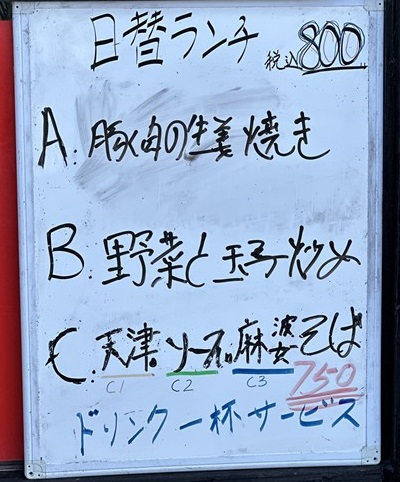 日替ランチ 税込800
A.豚肉の生姜焼き
B.野菜と玉子炒め
C.天津。ソース。麻婆そば
C1 C2 C3 750
ドリンク一杯サービス